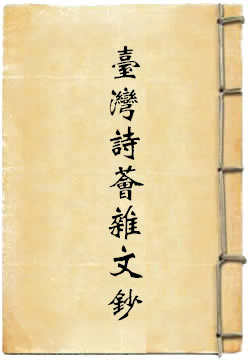 臺灣詩薈雜文鈔